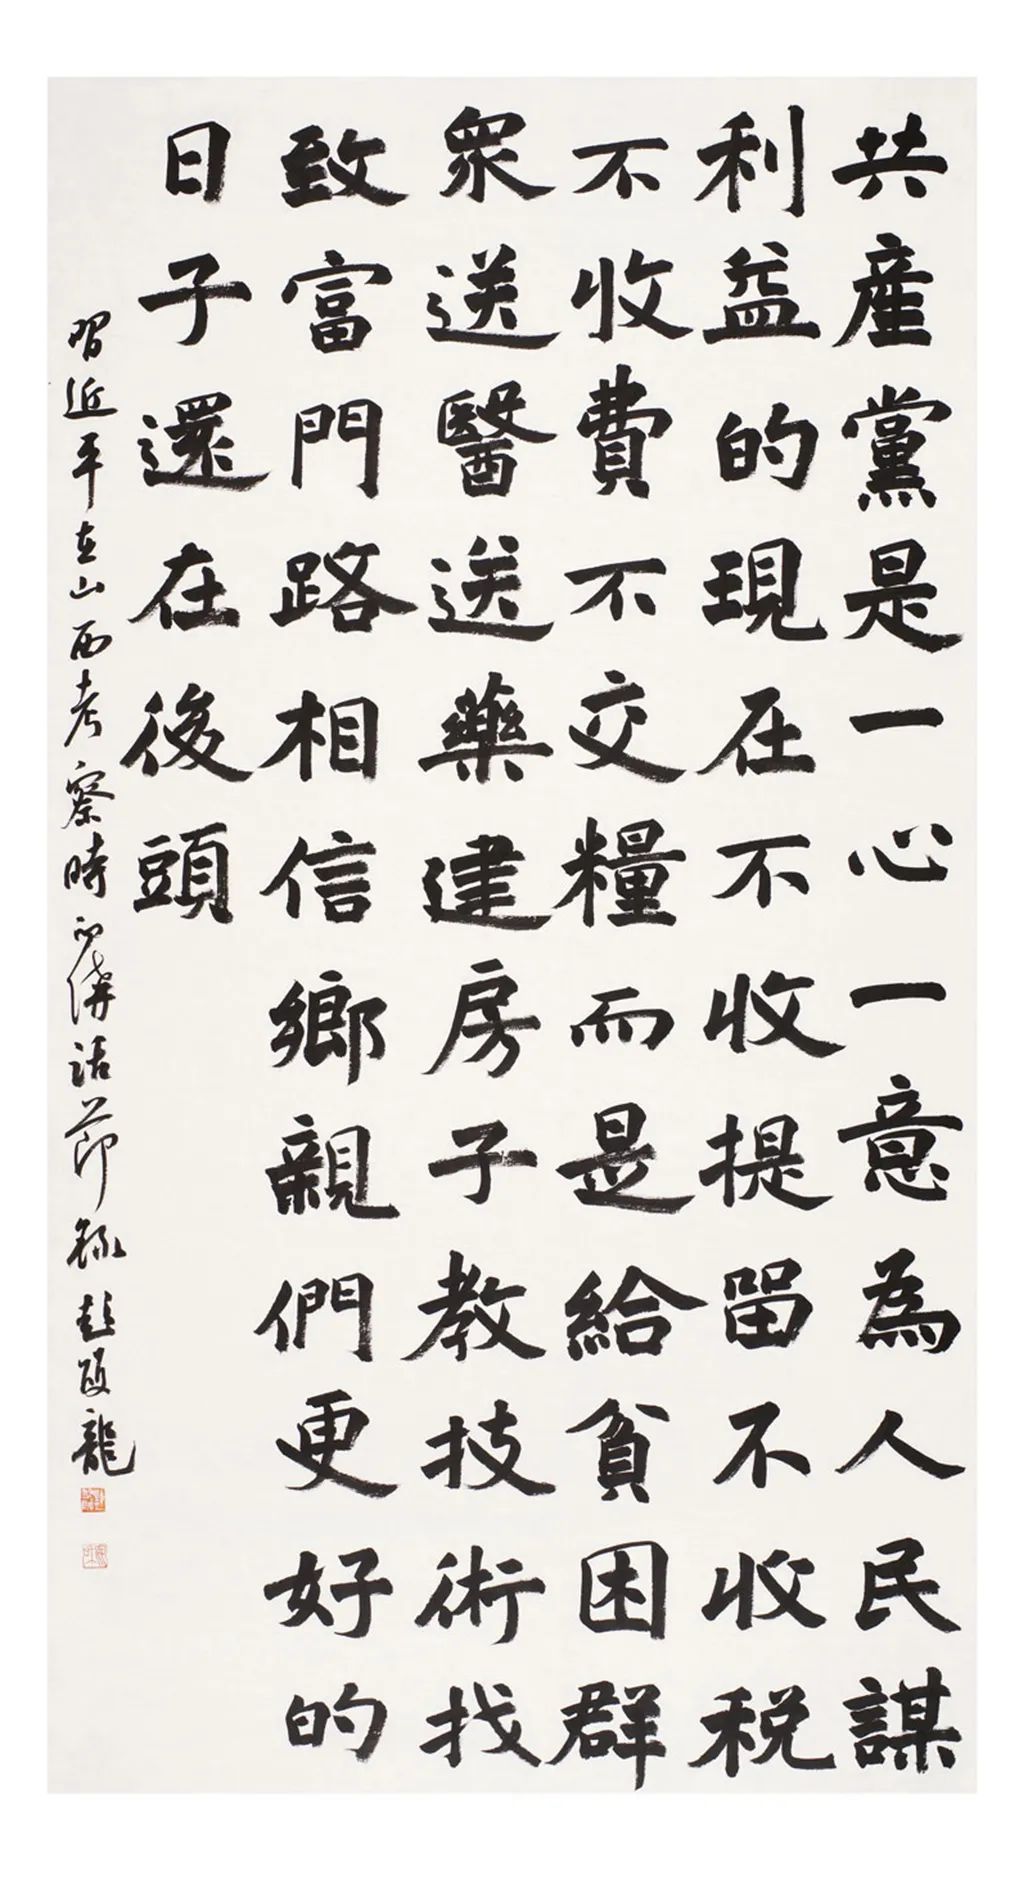 共産黨是一心一意為人民謀
利益的現在不收提留不收税
不收費不交糧而是給貧困群
衆送醫送藥建房子教技術找
致富門路相信鄉親們更好的
日子還在後頭
習近平在山西考察時的講話節録 趙龍